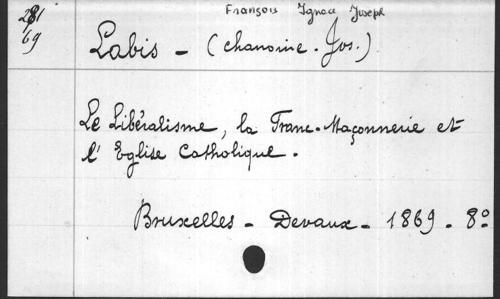 281 François Ignace Joseph
69
Labis - (chanoine. Jos.)
Le Libéralisme, la Franc-Maçonnerie et
l'Eglise Catholique.
Bruxelles - Devaux - 1869 - 8º